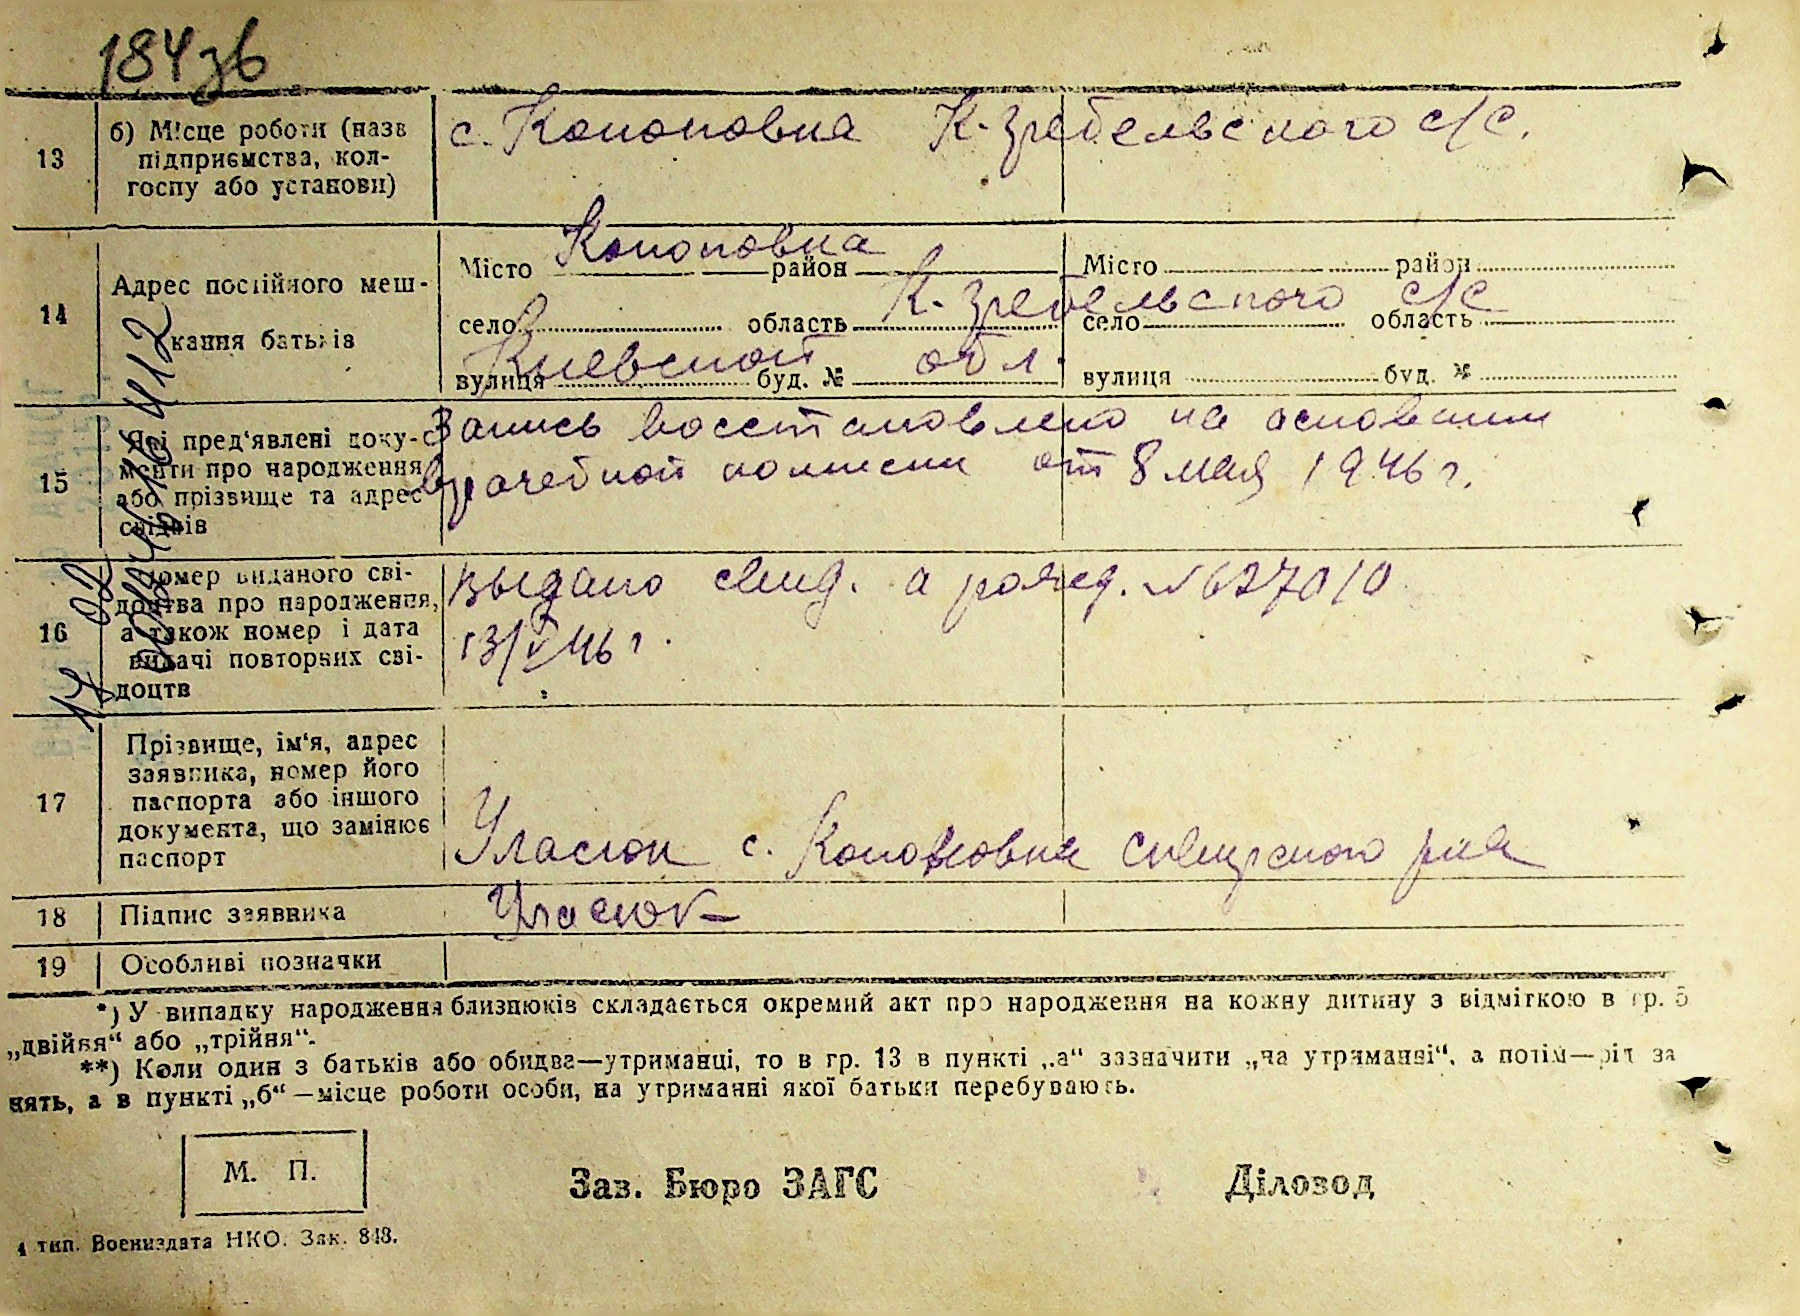 184зв
13
б) Місце роботи (назв
підприємства, кол-
госпу або установи)
с. Коноповна К-Гребельского с/с.
14
Адрес постійного меш-
кання батьків
Коноповна
Місто район Місто район
К-Гребельского с/с
село область село область
Киевской обл.
вулиця буд. № вулиця буд. №
15
Які пред'явлені доку-
менти про народження
або прізвище та адрес
свідків
Запись восстановлено на основании
врачебной от 8 мая 1946 г.
16
Номер виданого сві-
доцтва про народження,
а також номер і дата
видачі повторних сві-
доцтв
Выдано свид. о рожд. №627010
13/V 46 г.
17
Прізвище, ім'я, адрес
заявника, номер його
паспорта або іншого
документа, що замінює
паспорт
Уласюк с. Коноповна Сквирского р-на
18
Підпис заявника
Уласюк
19
Особливі позначки
*) У випадку народження близнюків складається окремий акт про народження на кожну дитину з відміткою в гр. 5
„двійня“ або „трійня“.
**) Коли один з батьків або обидва—утриманці, то в гр. 13 в пункті „а“ зазначити „на утриманні“, а потім—рід за
нять, а в пункті „б“—місце роботи особи, на утриманні якої батьки перебувають.
М. П.
Зав. Бюро ЗАГС
Діловод
4 тип. Воениздата НКО. Зак. 848.